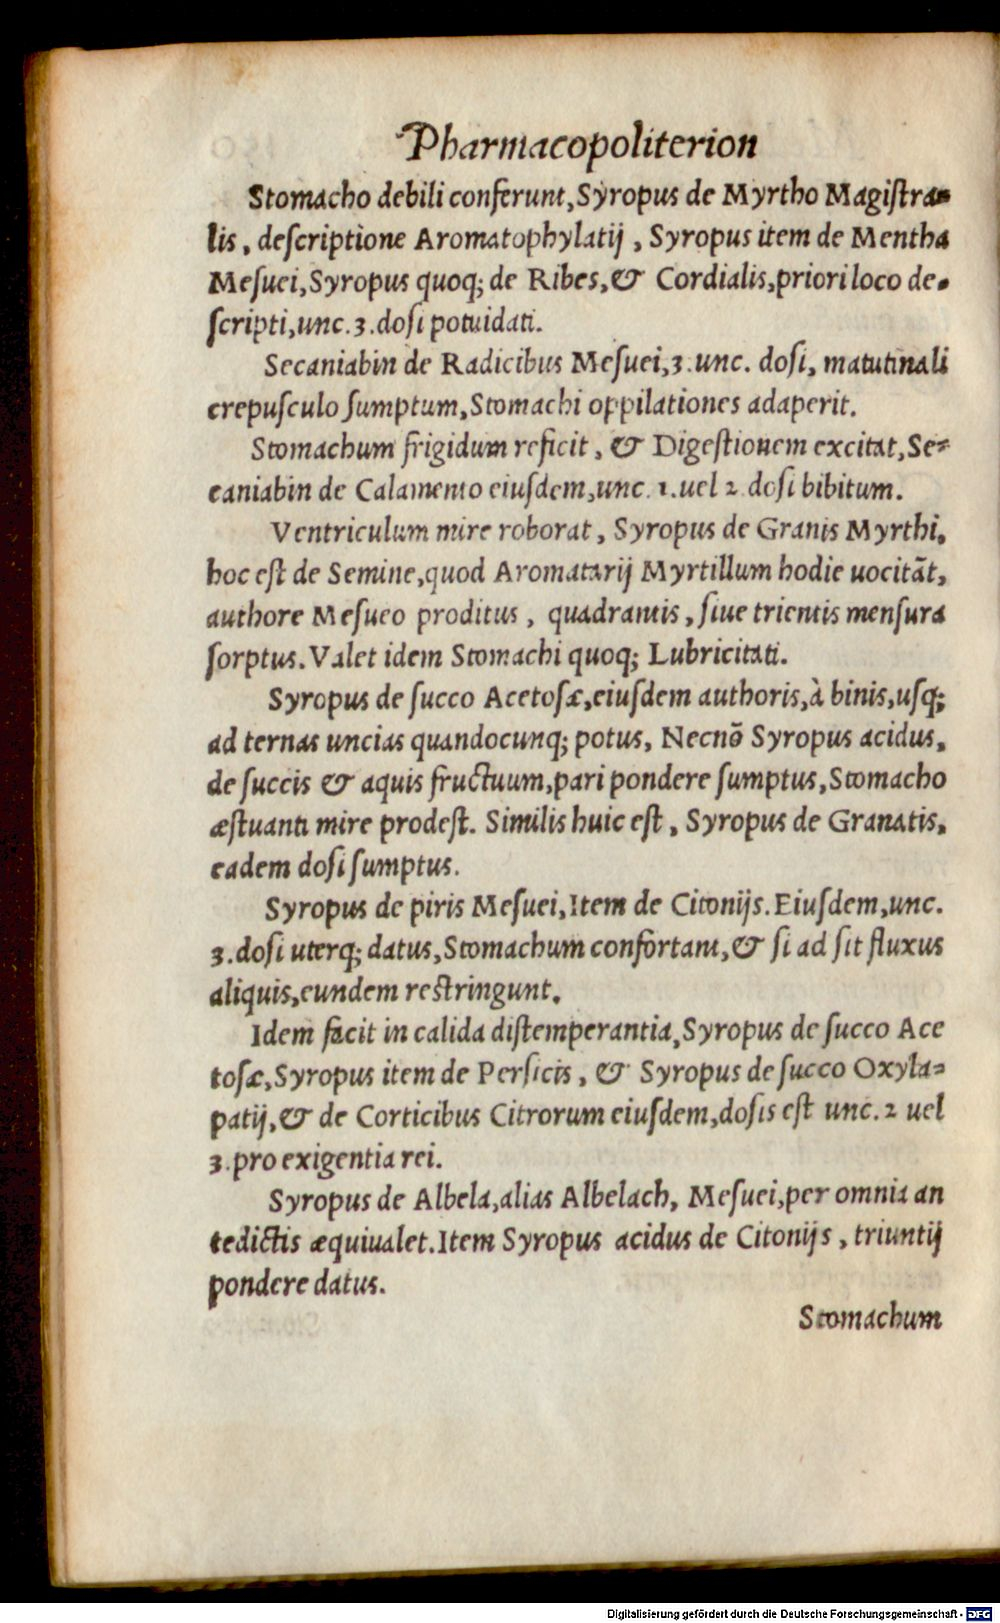 Pharmacopoliterion
Stomacho debili conferunt, Syropus de Myrtho Magiſtra=
lis, deſcriptione Aromatophylatij, Syropus item de Mentha
Meſuei, Syropus quoq; de Ribes, & Cordialis, priori loco de=
ſcripti, unc. 3. doſi potui dati.
Secaniabin de Radicibus Meſuei, 3. unc. doſi, matutinali
crepuſculo ſumptum, Stomachi oppilationes adaperit.
Stomachum frigidum reficit, & Digeſtionem excitat, Se=
caniabin de Calamento eiuſdem, unc. 1. uel 2 doſi bibitum.
Ventriculum mire roborat, Syropus de Granis Myrthi,
hoc eſt de Semine, quod Aromatarij Myrtillum hodie uocitāt,
authore Meſueo proditus, quadrantis, ſiue trientis menſura
ſorptus. Valet idem Stomachi quoq; Lubricitati.
Syropus de ſucco Acetoſæ, eiuſdem authoris, à binis, uſq;
ad ternas uncias quandocunq; potus, Necnō Syropus acidus,
de ſuccis & aquis fructuum, pari pondere ſumptus, Stomacho
æſtuanti mire prodeſt. Similis huic eſt, Syropus de Granatis,
eadem doſi ſumptus.
Syropus de piris Meſuei, Item de Citonijs. Eiuſdem, unc.
3. doſi uterq; datus, Stomachum confortant, & ſi ad ſit fluxus
aliquis, eundem reſtringunt.
Idem facit in calida diſtemperantia, Syropus de ſucco Ace
toſæ, Syropus item de Perſicis, & Syropus de ſucco Oxyla=
patij, & de Corticibus Citrorum eiuſdem, doſis eſt unc. 2 uel
3. pro exigentia rei.
Syropus de Albela, alias Albelach, Meſuei, per omnia an
tedictis æquiualet. Item Syropus acidus de Citonijs, triuntij
pondere datus.
Stomachum
Digitalisierung gefördert durch die Deutsche Forschungsgemeinschaft - DFG